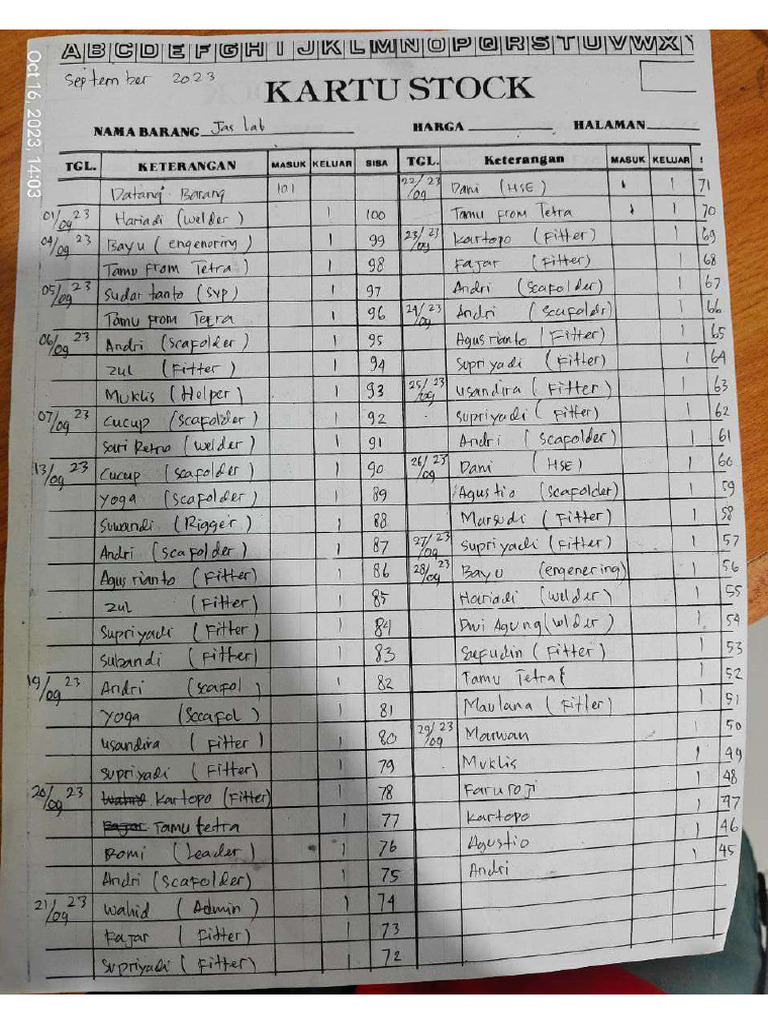 Oct 16, 2023, 14:03
A B C D E F G H I J K L M N O P Q R S T U V W X Y
September 2023
KARTU STOCK
NAMA BARANG Jas lab HARGA HALAMAN
TGL. KETERANGAN MASUK KELUAR SISA
Datang Barang 101
01/09 23 Hariadi (welder) 1 100
04/09 23 Bayu (engenoring) 1 99
Tamu From Tetra) 1 98
05/09 23 Sudartanto (SVP) 1 97
Tamu From Tetra 1 96
06/09 23 Andri (scafolder) 1 95
Zul (Fitter) 1 94
Muklis (Helper) 1 93
07/09 23 Cucup (scafolder) 1 92
Sari Retno (welder) 1 91
13/09 23 Cucup (scafolder) 1 90
Yoga (scafolder) 1 89
Suwandi (Rigger) 1 88
Andri (scafolder) 1 87
Agus rianto (Fitter) 1 86
Zul (Fitter) 1 85
Supriyadi (Fitter) 1 84
Subandi (Fitter) 1 83
19/09 23 Andri (scafol) 1 82
Yoga (Sccafol) 1 81
Usandira (Fitter) 1 80
Supriyadi (Fitter) 1 79
20/09 23 Wahid Kartopo (Fitter) 1 78
Fajar Tamu tetra 1 77
Romi (Leader) 1 76
Andri (scafolder) 1 75
21/09 23 Wahid (Admin) 1 74
Fajar (Fitter) 1 73
Supriyadi (Fitter) 1 72
TGL. Keterangan MASUK KELUAR
22/09 23 Dani (HSE) 1 71
Tamu From Tetra 1 70
23/09 23 Kartopo (Fitter) 1 69
Fajar (Fitter) 1 68
Andri (scafolder) 1 67
24/09 23 Andri (scafoldr) 1 66
Agus rianto (Fitter) 1 65
Supriyadi (Fitter) 1 64
25/09 23 Usandira (Fitter) 1 63
Supriyadi (Fitter) 1 62
Andri (scafolder) 1 61
26/09 23 Dani (HSE) 1 60
Agustio (scafolder) 1 59
Marsudi (Fitter) 1 58
27/09 23 Supriyadi (Fitter) 1 57
28/09 23 Bayu (engenering) 1 56
Hariadi (welder) 1 55
Dwi Agung (wlder) 1 54
Saefudin (Fitter) 1 53
Tamu Tetra 1 52
Maulana (Fitler) 1 51
29/09 23 Marwan 1 50
Muklis 1 49
Faruroji 1 48
Kartopo 1 47
Agustio 1 46
Andri 1 45